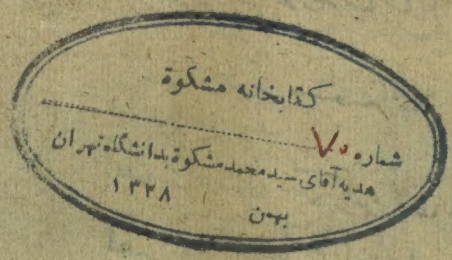 کتابخانه مشکوة
شماره ۷۰
هدیه آقای سید محمد مشکوة بدانشگاه تهران
۱۳۲۸
بهمن